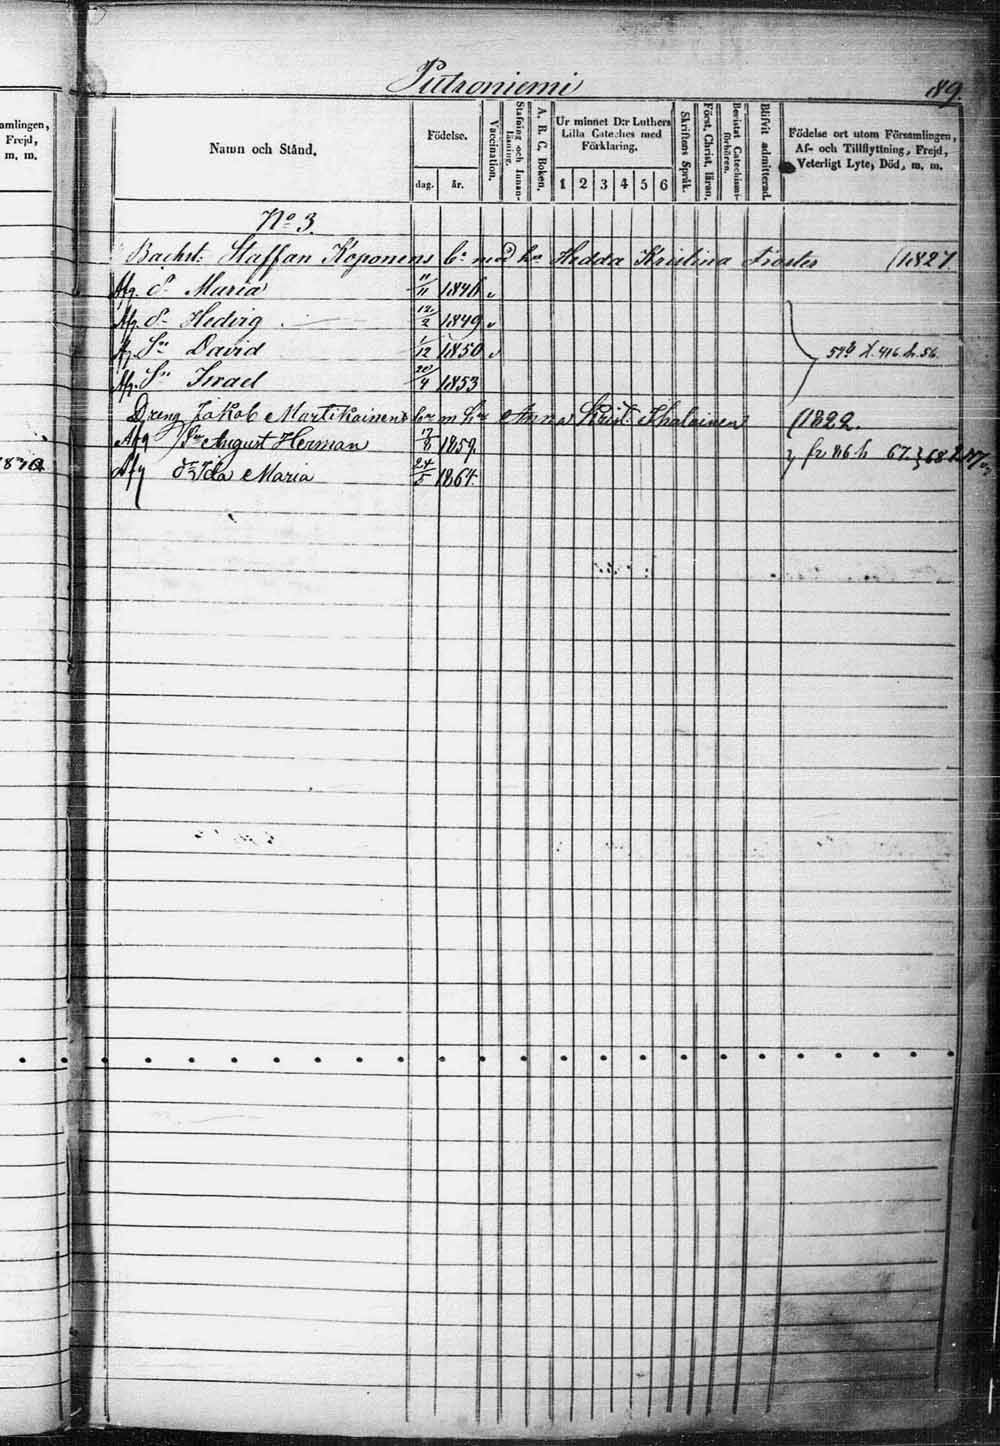 Putroniemi
89.
amlingen,
Frejd,
m. m.
Namn och Stånd.
Födelse.
dag. år.
Vaccination.
Stafning och Innan-
läsning.
A. B. C. Boken.
Ur minnet D:r Luthers
Lilla Cateches med
Förklaring.
1 2 3 4 5 6
Skriftens Språk.
Först. Christ. läran.
Bevistat Catechismi-
förhören.
Blifvit admitterad.
Födelse ort utom Församlingen,
Af- och Tillflyttning, Frejd,
Veterligt Lyte, Död, m. m.
No 3.
Backst: Staffan Koponens br med hu Hedda Kristina Froster (1827
Afg. dr Maria 11/11 1846 v
Afg. dr Hedvig 12/2 1849 v
Afg. Sn David 1/12 1850 v
57b X. 416 h. 56.
Afg. Sn Israel 20/4 1853
Dreng Jakob Martikainens br m hu Anna Krist. Ihalainen (1822.
Afg Sn August Herman 17/8 1859.
fr 86 h 67.
1870
Afg dr Ida Maria 24/5 1864.